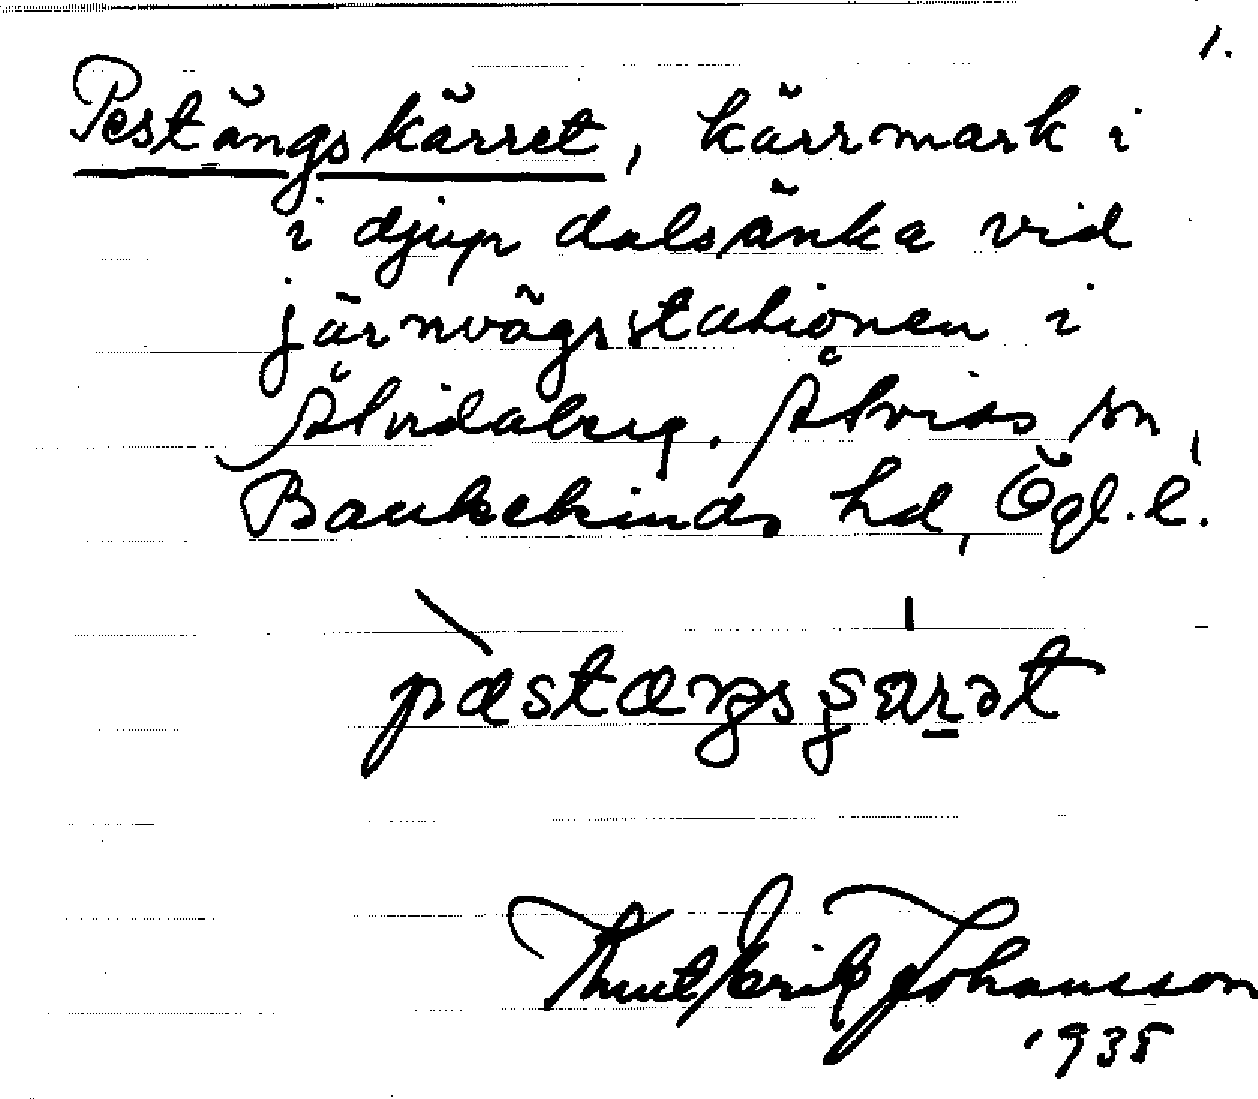 1.
Pestängskärret, kärrmark i
i djup dalsänka vid
järnvägsstationen i
Åtvidaberg. Åtvids sn,
Bankekinds hd, Ögl. l.
Knut Erik Johansson
1935